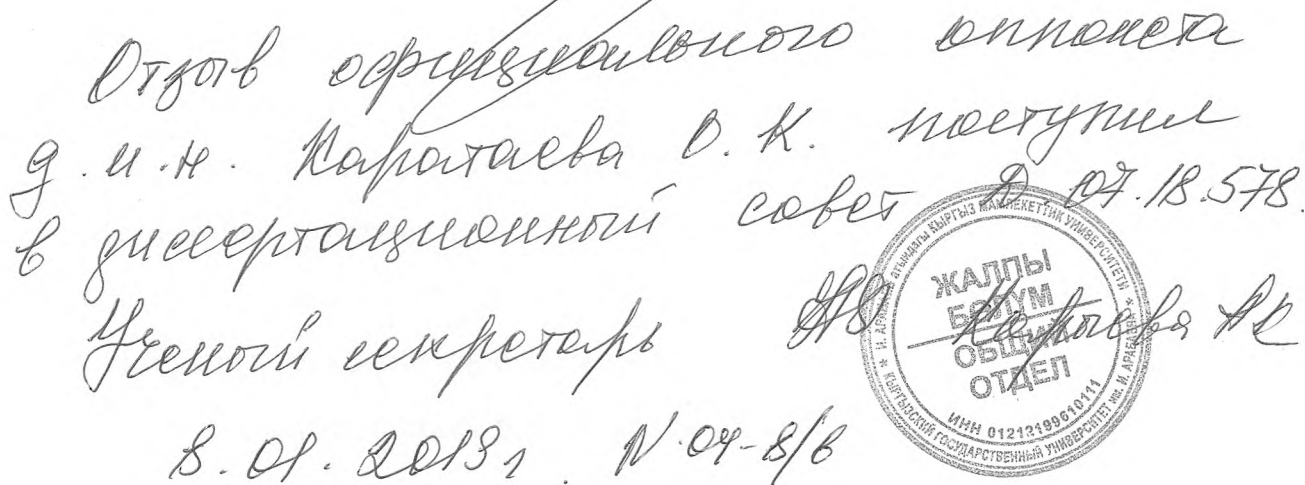 Отзыв официального оппонета
д.и.н. Каратаева О.К. поступил
в диссертационный совет Д.07.18.578.
Ученый секретарь
8.01.2019 г. N 04-8/6
И. АРАБАЕВ атындагы КЫРГЫЗ МАМЛЕКЕТТИК УНИВЕРСИТЕТИ
КЫРГЫЗСКИЙ ГОСУДАРСТВЕННЫЙ УНИВЕРСИТЕТ им. И. АРАБАЕВА
ИНН 01212199610111
ЖАЛПЫ
БӨЛҮМ
ОБЩИЙ
ОТДЕЛ